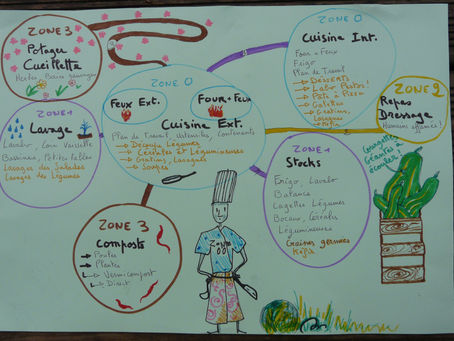 ZONE 3
Potager
Cueillette
Herbes, Baies sauvages
ZONE 0
Cuisine Int.
Four + Feux
Frigo
Plan de Travail
→ Desserts
→ Labo Pestos!
→ Pâte à Pizza
→ Galettes
→ Gratins,
Lasagnes
→ Kéfir
ZONE 0
Feux Ext.
Four + Feux
Cuisine Ext.
Plan de Travail, Ustensiles, Contenants
→ Découpe Légumes
→ Céréales et Légumineuses
→ Gratins, Lasagnes
→ Soupes
ZONE 2
Repas
Dressage
Humains affamés!
ZONE 1
Lavage
Lavabo, Coin Vaisselle
Bassines, Petites tables
Lavages des Salades
Lavages des Légumes
ZONE 1
Stocks
Frigo, Lavabo
Balance
Cagettes Légumes
Bocaux, Céréales
Légumineuses
Graines germées
Kéfir
Courgettes
Géantes à
écouler!
ZONE 3
Composts
→ Poules
→ Plantes
↳ Vermicompost
↳ Direct
Zone
00